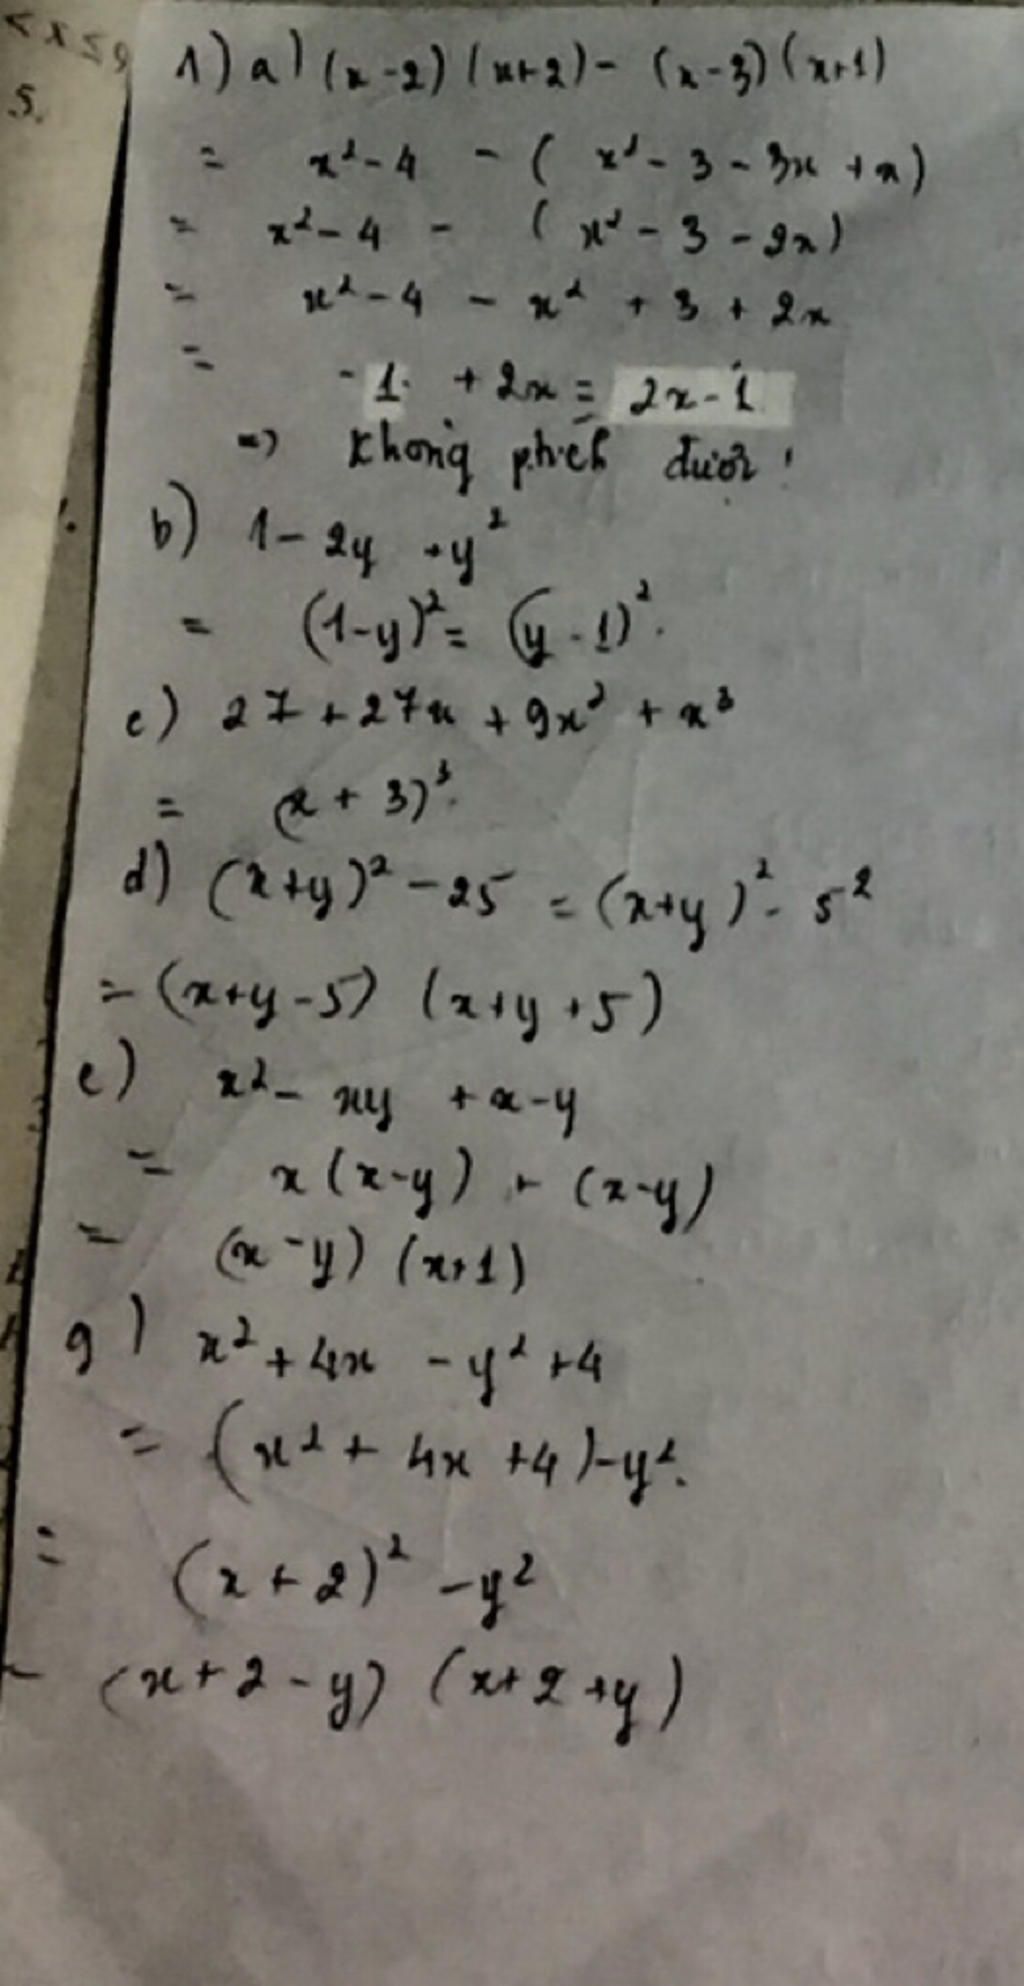 < x ≤ 9
5.
1) a) (x-2) (x+2) - (x-3) (x+1)
= x² - 4 - ( x² - 3 - 3x + x)
= x² - 4 - ( x² - 3 - 2x)
= x² - 4 - x² + 3 + 2x
= -1 + 2x = 2x - 1
=> không phích được !
b) 1 - 2y + y²
= (1-y)² = (y - 1)².
c) 27 + 27x + 9x² + x³
= (x + 3)³.
d) (x+y)² - 25 = (x+y)² - 5²
= (x+y-5) (x+y+5)
e) x² - xy + x - y
= x(x-y) + (x-y)
= (x-y) (x+1)
g) x² + 4x - y² + 4
= (x² + 4x + 4) - y².
= (x + 2)² - y²
= (x+2-y) (x+2+y)